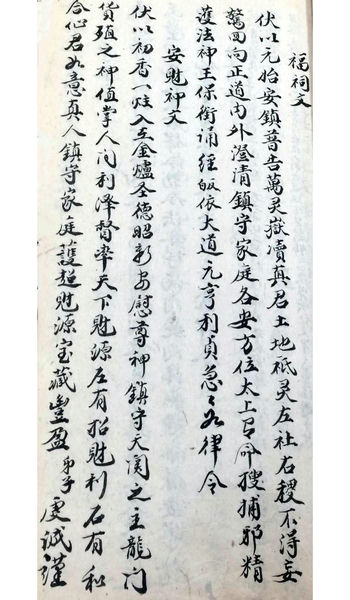 福祠文
伏以元始安鎮普告萬灵嶽瀆真君土地祇灵左社右稷不得妄
驚回向正道内外澄清鎮守家庭各安方位太上有命搜捕邪精
護法神王保衛誦經皈依大道元亨利貞急〻如律令
安財神文
伏以初香一炷入在金爐圣德昭彰安慰尊神鎮守天関之主龍门
货殖之神值掌人间利泽督率天下财源左有招财利右有和
合心君如意真人鎮守家庭護趋财源宝藏豐盈弟子虔诚谨